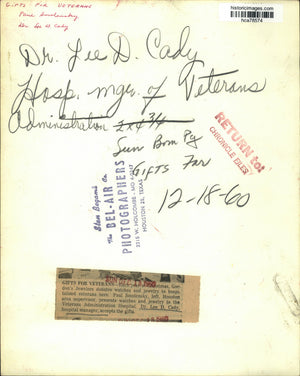 historicimages.com
hca78574
GIFTS FOR VETERANS
Paul
Dr. Lee D. Cady
Dr. Lee D. Cady
Hosp. mgr. of Veterans
Administration 2x4 3/4
Sun Bom Pg
GIFTS For
12-18-60
RETURN to:
CHRONICLE FILES
The
BEL-AIR Co.
PHOTOGRAPHERS
2215 W. HOLCOMBE - MO
HOUSTON 25, TEXAS
GIFTS FOR VETERANS
don's Jewelers donates watches and jewelry to hospi-
talized veterans here. Paul left, Houston
area supervisor, presents watches and jewelry to the
Veterans Administration Hospital. Dr. Lee D. Cady,
hospital manager, accepts the gifts.